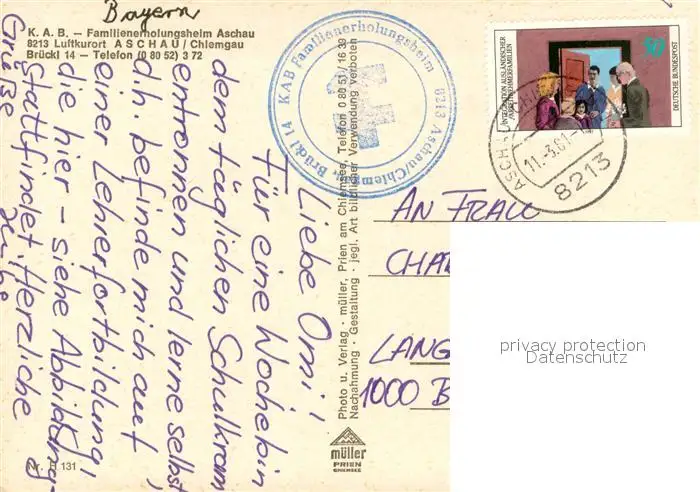 Bayern
K. A. B. – Familienerholungsheim Aschau
8213 Luftkurort ASCHAU / Chiemgau
Brückl 14 – Telefon (0 80 52) 3 72
KAB Familienerholungsheim 8213 Aschau/Chiemgau, Brückl 14
INTEGRATION AUSLÄNDISCHER
ARBEITNEHMERFAMILIEN
DEUTSCHE BUNDESPOST
ASCHAU
11.-3.81
8213
Liebe Omi!
Für eine Woche bin
dem täglichen Schulkram
entronnen und lerne selbst,
d.h. befinde mich auf
einer Lehrerfortbildung,
die hier – siehe Abbildung –
stattfindet. Herzliche
Grüße
Photo u. Verlag · müller, Prien am Chiemsee, Telefon 0 80 51 / 16 39
Nachahmung · Gestaltung · jegl. Art bildlicher Verwendung verboten
AN FRAU
CHA
LANG
1000 B
privacy protection
Datenschutz
müller
PRIEN
CHIEMSEE
Nr. H 131